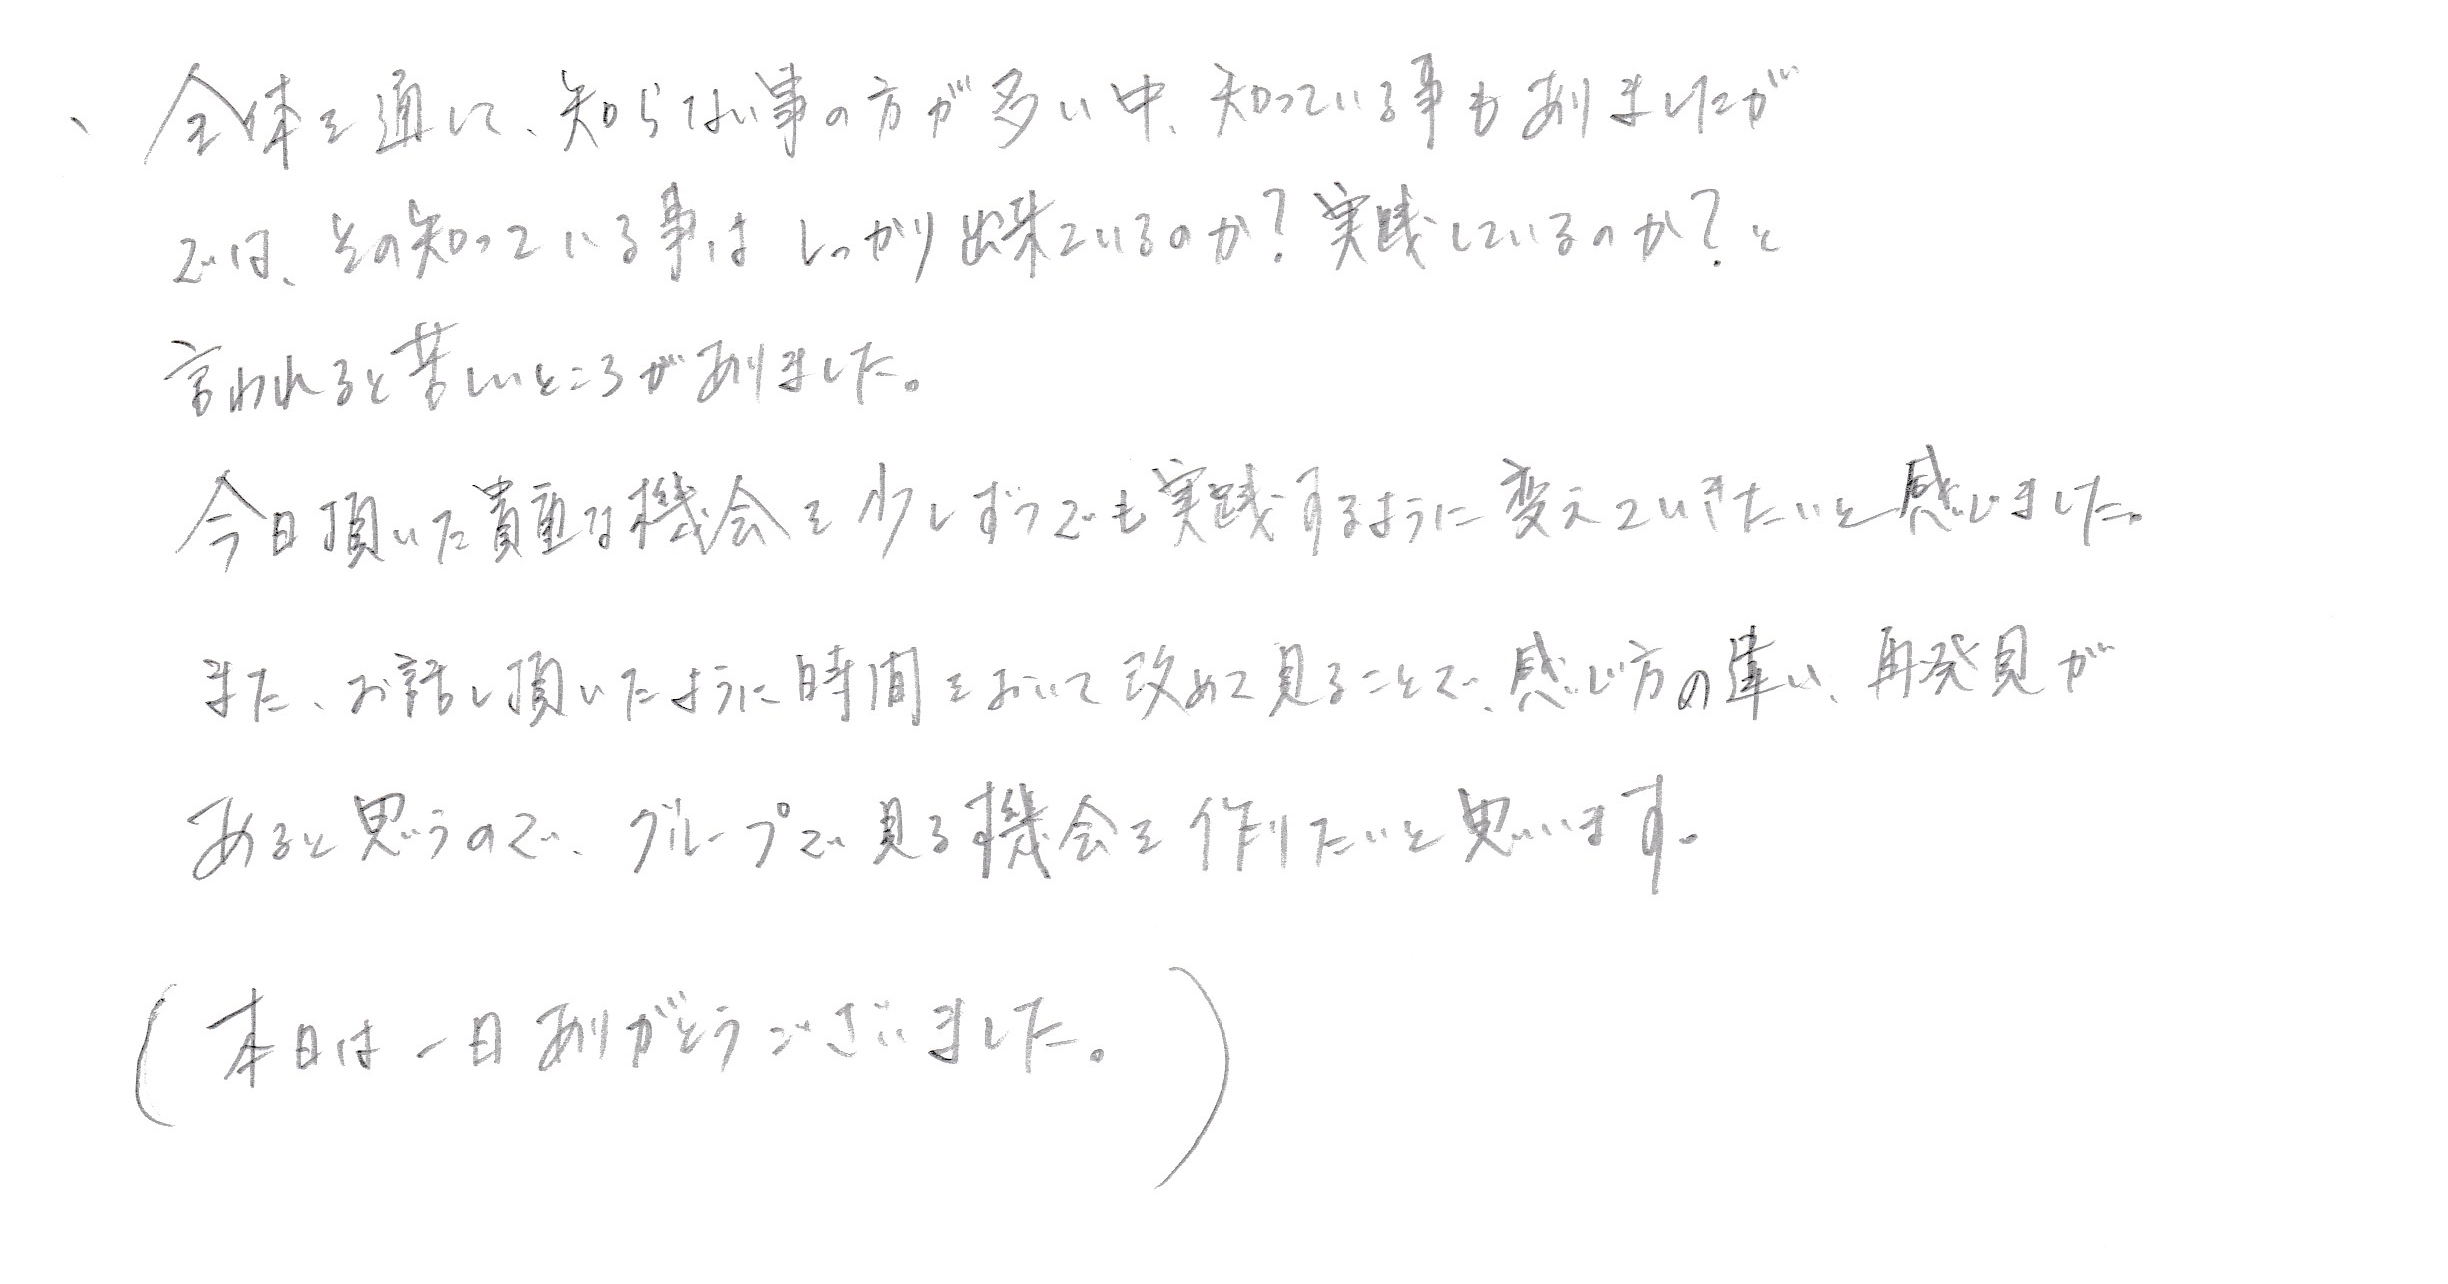 全体を通して、知らない事の方が多い中、知っている事もありましたが
では、その知っている事はしっかり出来ているのか？実践しているのか？と
言われると苦しいところがありました。
今日頂いた貴重な機会を少しずつでも実践するように変えていきたいと感じました。
また、お話し頂いたように時間をおいて改めて見ることで、感じ方の違い、再発見が
あると思うので、グループで見る機会を作りたいと思います。
(本日は一日ありがとうございました。)